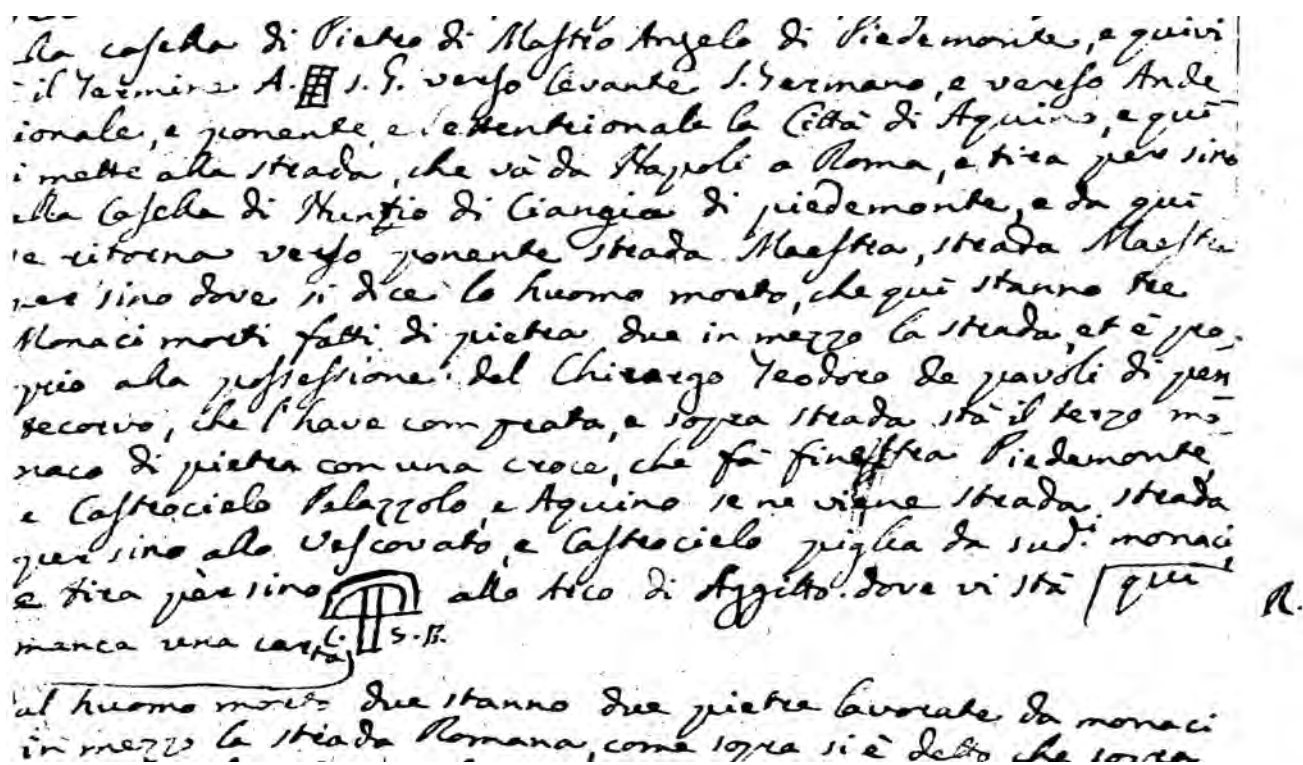 lla casella di Pietro di Mastro Angelo di Piedemonte, e quivi
il Termine A. S. G. verso levante S. Germano, e verso Ande
ionale, e ponente, e settentrionale la Città di Aquino, e qui
i mette alla strada, che và da Napoli a Roma, e tira per sino
alla Casella di Nuntio di Ciangia di piedemonte, e da qui
se ritorna verso ponente strada Maestra, strada Maestra
per sino dove si dice lo huomo morto, che quì stanno tre
Monaci morti fatti di pietra due in mezzo la strada, et è pro,
prio alla possessione del Chirurgo Teodoro de pavoli di pon
tecorvo, che l'have comprata, e sopra strada stà il terzo mo
naco di pietra con una croce, che fà finestra Piedemonte,
e Castrocielo Palazzolo, e Aquino se ne viene strada, strada
per sino allo Vescovato, e Castrocielo piglia da sud.i monaci,
e tira per sino allo Arco di dove vi stà qui R.
manca una carta C. S. B.
al huomo morto due stanno due pietre lavorate da monaci
in mezzo la strada Romana, come sopra si è detto che sopra